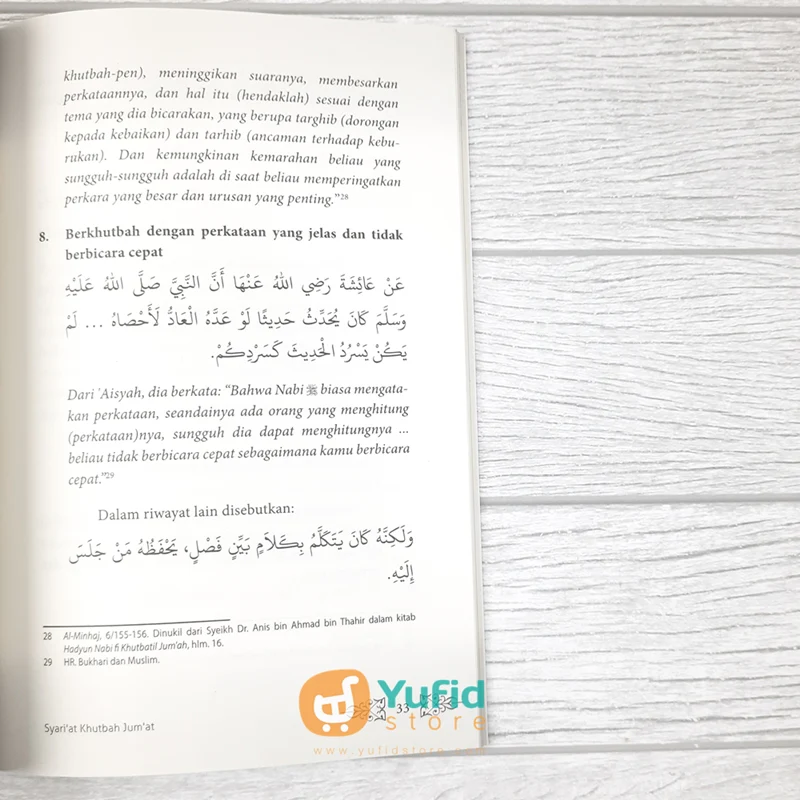 khutbah-pen), meninggikan suaranya, membesarkan
perkataannya, dan hal itu (hendaklah) sesuai dengan
tema yang dia bicarakan, yang berupa targhib (dorongan
kepada kebaikan) dan tarhib (ancaman terhadap kebu-
rukan). Dan kemungkinan kemarahan beliau yang
sungguh-sungguh adalah di saat beliau memperingatkan
perkara yang besar dan urusan yang penting.”28
8. Berkhutbah dengan perkataan yang jelas dan tidak
berbicara cepat
عَنْ عَائِشَةَ رَضِي اللهُ عَنْهَا أَنَّ النَّبِيَّ صَلَّى اللهُ عَلَيْهِ
وَسَلَّمَ كَانَ يُحَدِّثُ حَدِيثًا لَوْ عَدَّهُ الْعَادُّ لَأَحْصَاهُ ... لَمْ
يَكُنْ يَسْرُدُ الْحَدِيثَ كَسَرْدِكُمْ.
Dari ʿAisyah, dia berkata: “Bahwa Nabi ﷺ biasa mengata-
kan perkataan, seandainya ada orang yang menghitung
(perkataan)nya, sungguh dia dapat menghitungnya ...
beliau tidak berbicara cepat sebagaimana kamu berbicara
cepat.”29
Dalam riwayat lain disebutkan:
وَلَكِنَّهُ كَانَ يَتَكَلَّمُ بِكَلَامٍ بَيِّنٍ فَصْلٍ، يَحْفَظُهُ مَنْ جَلَسَ
إِلَيْهِ.
28 Al-Minhaj, 6/155-156. Dinukil dari Syeikh Dr. Anis bin Ahmad bin Thahir dalam kitab
Hadyun Nabi fi Khutbatil Jum'ah, hlm. 16.
29 HR. Bukhari dan Muslim.
Syari'at Khutbah Jum'at
33
Yufid
store
www.yufidstore.com